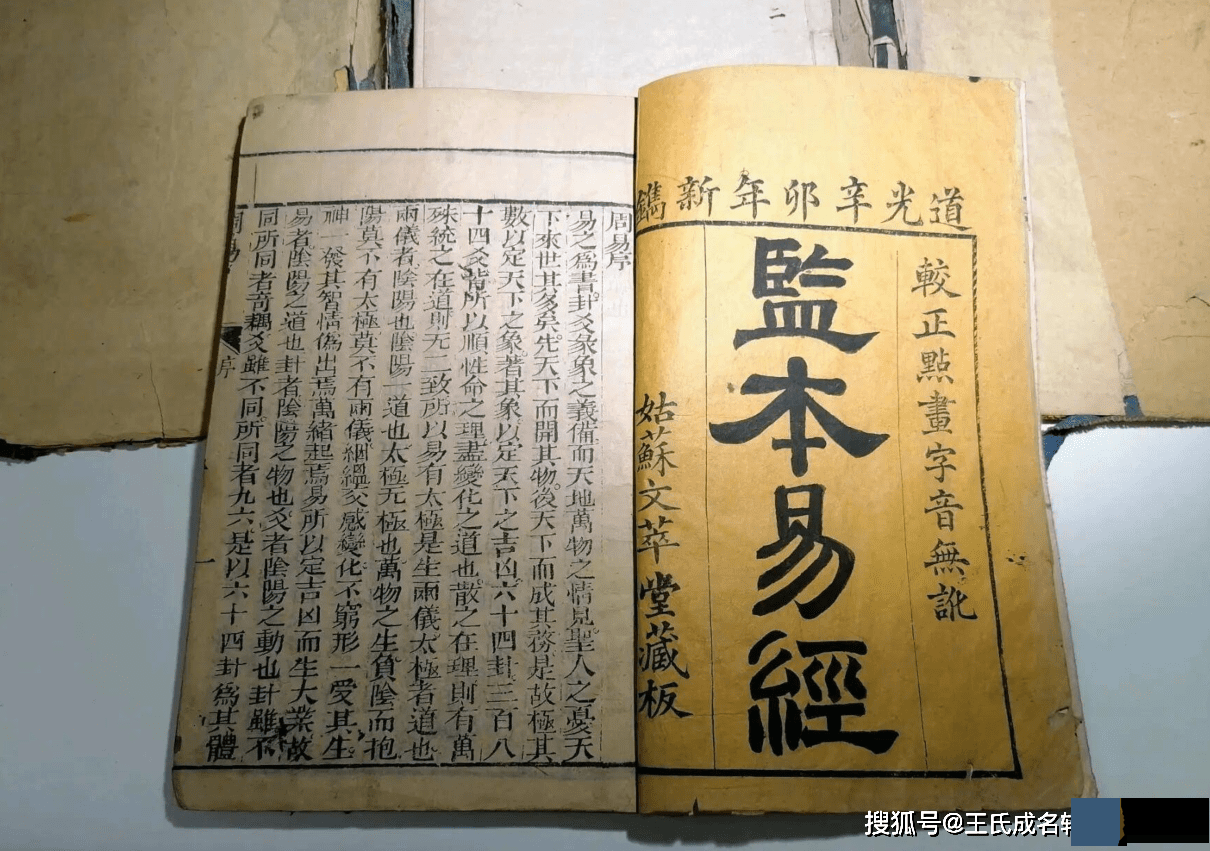 道光辛卯年新鐫
較正點畫字音無訛
監本易經
姑蘇文萃堂藏板
周易序
易之爲書卦爻彖象之義備而天地萬物之情見聖人之憂天
下來世其多矣先天下而開其物後天下而成其務是故極其
數以定天下之象著其象以定天下之吉凶六十四卦三百八
十四爻皆所以順性命之理盡變化之道也散之在理則有萬
殊統之在道則无二致所以易有太極是生兩儀太極者道也
兩儀者陰陽也陰陽一道也太極无極也萬物之生負陰而抱
陽莫不有太極莫不有兩儀絪縕交感變化不窮形一受其生
神一發其智情僞出焉萬緒起焉易所以定吉凶而生大業故
易者陰陽之道也卦者陰陽之物也爻者陰陽之動也卦雖不
同所同者奇耦爻雖不同所同者九六是以六十四卦爲其體
周易
序
一
搜狐号@王氏成名